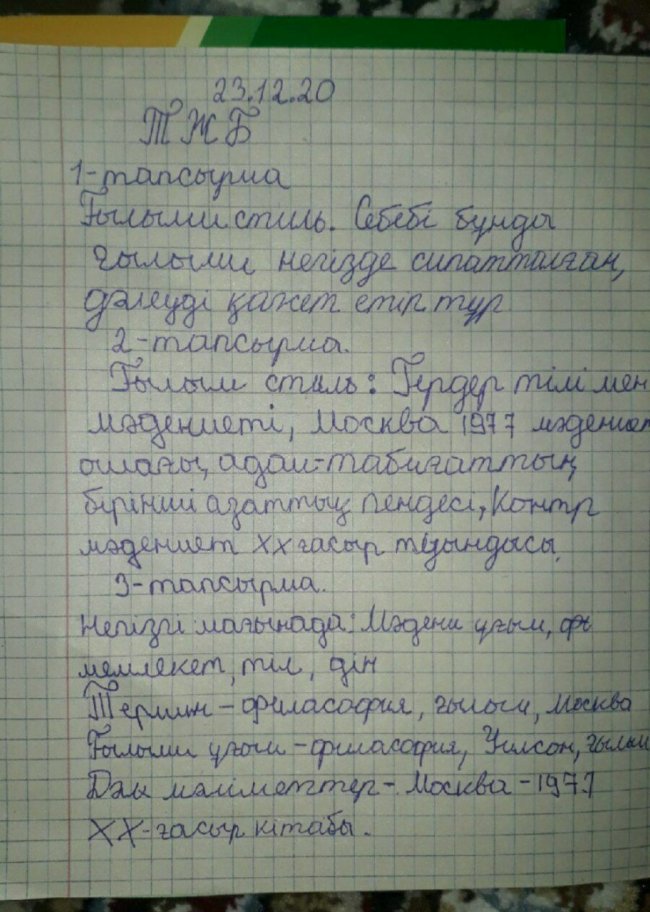 23.12.20
ТЖБ
1-тапсырма
Ғылыми стиль. Себебі бұнды
ғылыми негізде сипатталған,
дәлеуді қажет етіп тұр
2-тапсырма.
Ғылым стиль: Гердер тілі мен
мәдениеті, Москва 1977 мәдениет
ошағы, адам-табиғаттың
бірінші азаттық пендесі, Контр
мәдениет ХХ ғасыр туындысы.
3-тапсырма.
Негізгі мағынада: Мәдени ұғым,
мемлекет, тіл, дін
Термин - филасофия, ғылым, Москва
Ғылыми ұғым - филасофия, Уилсон, ғылым
Дәл мәліметтер - Москва - 1977
ХХ-ғасыр кітабы.